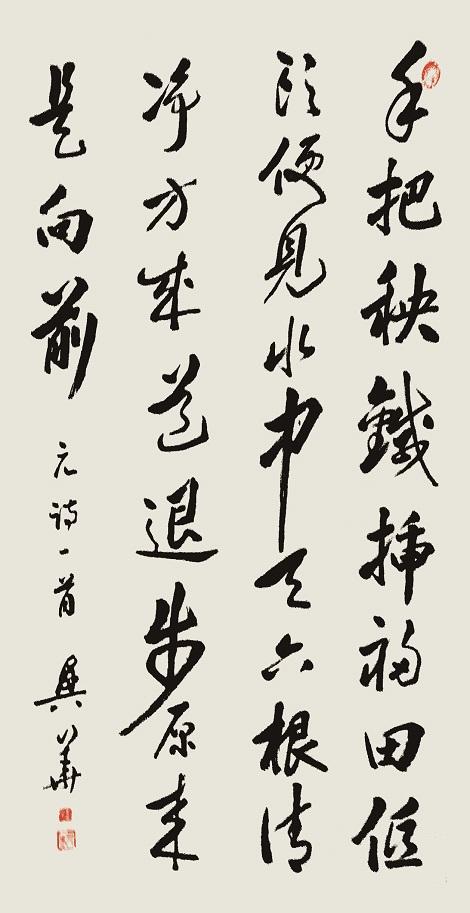 手把秧鍼插福田低
頭便見水中天六根清
淨方成道退步原来
是向前
元詩一首 華